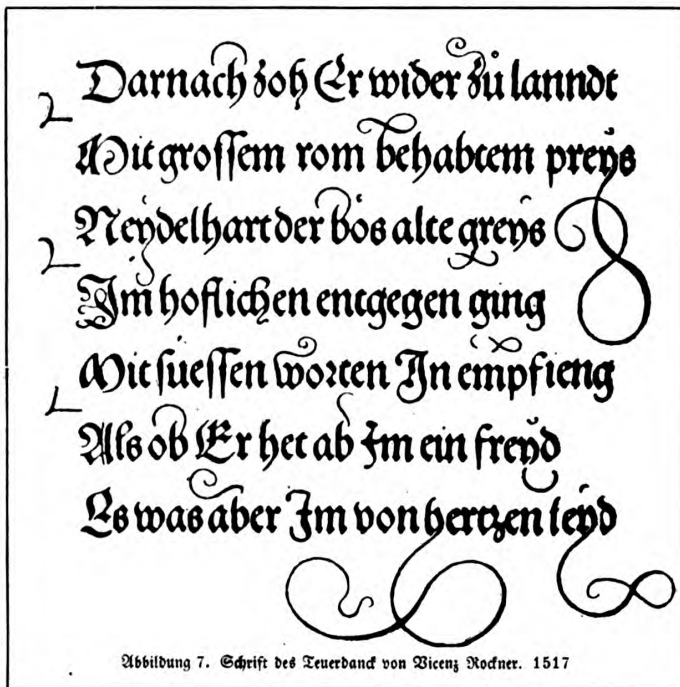 Darnach zoh Er wider zů lanndt
Mit grossem rom behabtem preys
Neydelhart der bös alte greys
Im hoflichen entgegen ging
Mit suessen worten In empfieng
Als ob Er het ab Im ein freyd
Es was aber Im von hertzen leyd
Abbildung 7. Schrift des Teuerdanck von Vicenz Rockner. 1517